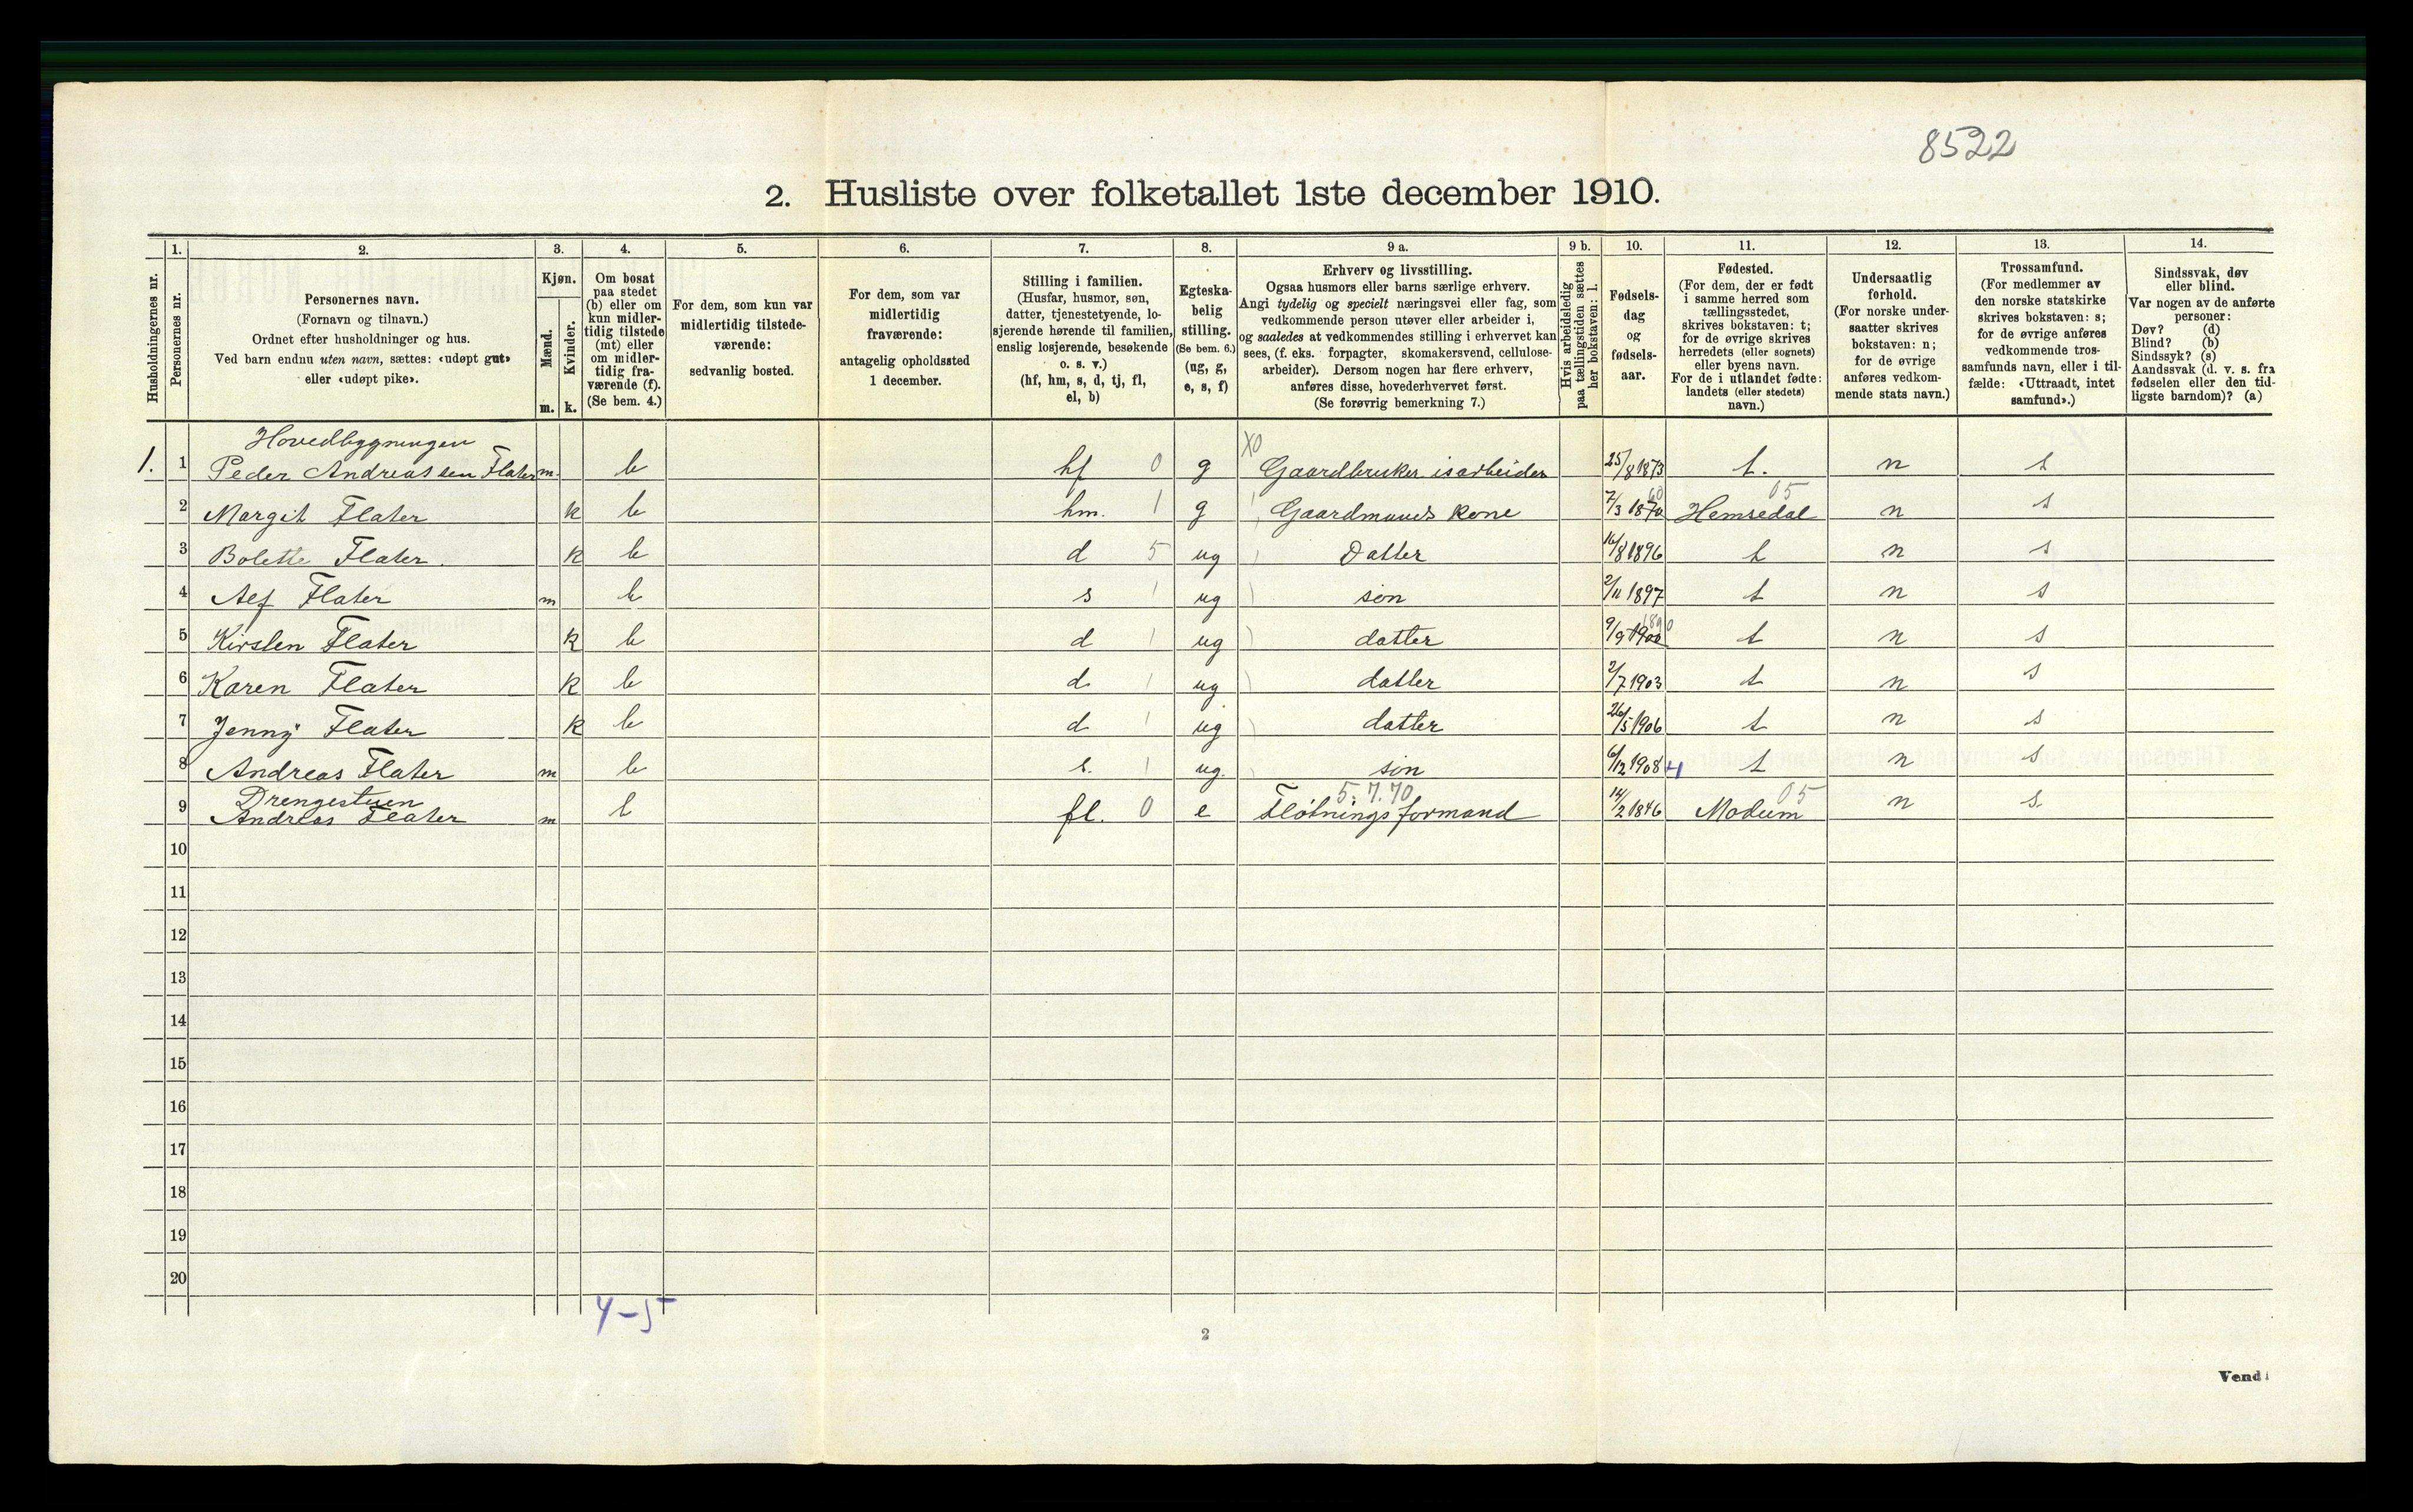 8522
2. Husliste over folketallet 1ste december 1910.
Husholdningernes nr.
1.
Personernes nr.
2.
Personernes navn.
(Fornavn og tilnavn.)
Ordnet efter husholdninger og hus.
Ved barn endnu uten navn, sættes: «udøpt gut»
eller «udøpt pike».
3.
Kjøn.
Mænd.
Kvinder.
m. k.
4.
Om bosat
paa stedet
(b) eller om
kun midler-
tidig tilstede
(mt) eller
om midler-
tidig fra-
værende (f).
(Se bem. 4.)
5.
For dem, som kun var
midlertidig tilstede-
værende:
sedvanlig bosted.
6.
For dem, som var
midlertidig
fraværende:
antagelig opholdssted
1 december.
7.
Stilling i familien.
(Husfar, husmor, søn,
datter, tjenestetyende, lo-
sjerende hørende til familien,
enslig losjerende, besøkende
o. s. v.)
(hf, hm, s, d, tj, fl,
el, b)
8.
Egteska-
belig
stilling.
(Se bem. 6.)
(ug, g,
e, s, f)
9 a.
Erhverv og livsstilling.
Ogsaa husmors eller barns særlige erhverv.
Angi tydelig og specielt næringsvei eller fag, som
vedkommende person utøver eller arbeider i,
og saaledes at vedkommendes stilling i erhvervet kan
sees, (f. eks. forpagter, skomakersvend, cellulose-
arbeider). Dersom nogen har flere erhverv,
anføres disse, hovederhvervet først.
(Se forøvrig bemerkning 7.)
9 b.
Hvis arbeidsledig
paa tællingstiden sættes
her bokstaven: l.
10.
Fødsels-
dag
og
fødsels-
aar.
11.
Fødested.
(For dem, der er født
i samme herred som
tællingsstedet,
skrives bokstaven: t;
for de øvrige skrives
herredets (eller sognets)
eller byens navn.
For de i utlandet fødte:
landets (eller stedets)
navn.)
12.
Undersaatlig
forhold.
(For norske under-
saatter skrives
bokstaven: n;
for de øvrige
anføres vedkom-
mende stats navn.)
13.
Trossamfund.
(For medlemmer av
den norske statskirke
skrives bokstaven: s;
for de øvrige anføres
vedkommende tros-
samfunds navn, eller i til-
fælde: «Uttraadt, intet
samfund».)
14.
Sindssvak, døv
eller blind.
Var nogen av de anførte
personer:
Døv? (d)
Blind? (b)
Sindssyk? (s)
Aandssvak (d. v. s. fra
fødselen eller den tid-
ligste barndom)? (a)
Hovedbygningen
1. 1 Peder Andreassen Flater m. b hf 0 g X0 Gaardbruker isarbeider 25/8 1873 t. n s
2 Margit Flater k b hm. 1 g Gaardmands kone 7/3 1870 Hemsedal 05 n s
3 Bolette Flater. k b d 5 ug Datter 16/8 1896 t n s
4 Alf Flater m b s 1 ug søn 2/11 1897 t n s
5 Kirsten Flater k b d 1 ug datter 9/9 1900 t n s
6 Karen Flater k b d 1 ug datter 2/7 1903 t n s
7 Jenny Flater k b d 1 ug datter 26/5 1906 t n s
8 Andreas Flater m b s. 1 ug. søn 6/12 1908 4 t n s
Drengestuen
9 Andreas Flater m b fl. 0 e 5.7.70 Fløtningsformand 14/2 1846 Modum 05 n s.
10
11
12
13
14
15
16
17
18
19
20
4-5
2
Vend!